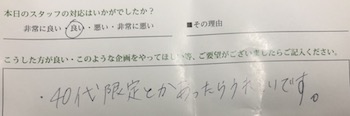 本日のスタッフの対応はいかがでしたか?
非常に良い・良い・悪い・非常に悪い
■その理由
こうした方が良い・このような企画をやってほしい等、ご要望がございましたらご記入ください。
・40代限定とかあったらうれしいです。